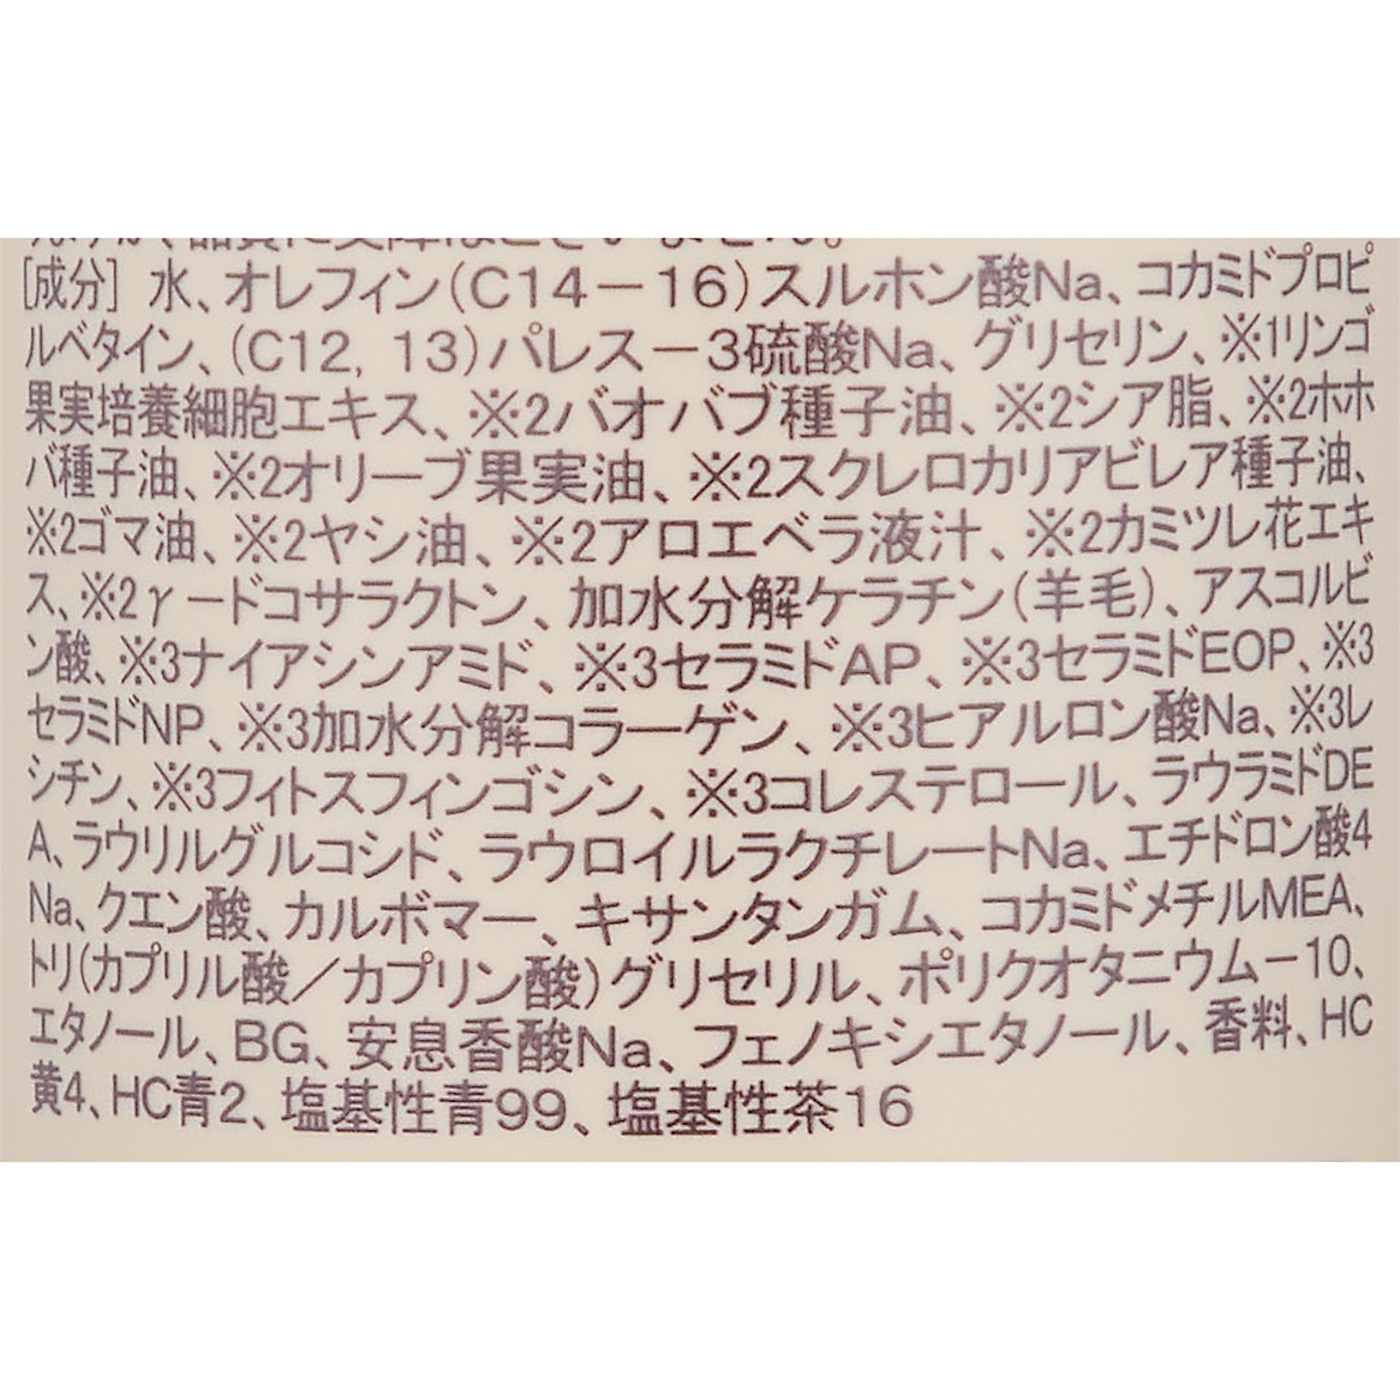 [成分] 水、オレフィン(C14－16)スルホン酸Na、コカミドプロピ
ルベタイン、(C12, 13)パレス－3硫酸Na、グリセリン、※1リンゴ
果実培養細胞エキス、※2バオバブ種子油、※2シア脂、※2ホホ
バ種子油、※2オリーブ果実油、※2スクレロカリアビレア種子油、
※2ゴマ油、※2ヤシ油、※2アロエベラ液汁、※2カミツレ花エキ
ス、※2γ－ドコサラクトン、加水分解ケラチン(羊毛)、アスコルビ
ン酸、※3ナイアシンアミド、※3セラミドAP、※3セラミドEOP、※3
セラミドNP、※3加水分解コラーゲン、※3ヒアルロン酸Na、※3レ
シチン、※3フィトスフィンゴシン、※3コレステロール、ラウラミドDE
A、ラウリルグルコシド、ラウロイルラクチレートNa、エチドロン酸4
Na、クエン酸、カルボマー、キサンタンガム、コカミドメチルMEA、
トリ(カプリル酸／カプリン酸)グリセリル、ポリクオタニウム－10、
エタノール、BG、安息香酸Na、フェノキシエタノール、香料、HC
黄4、HC青2、塩基性青99、塩基性茶16